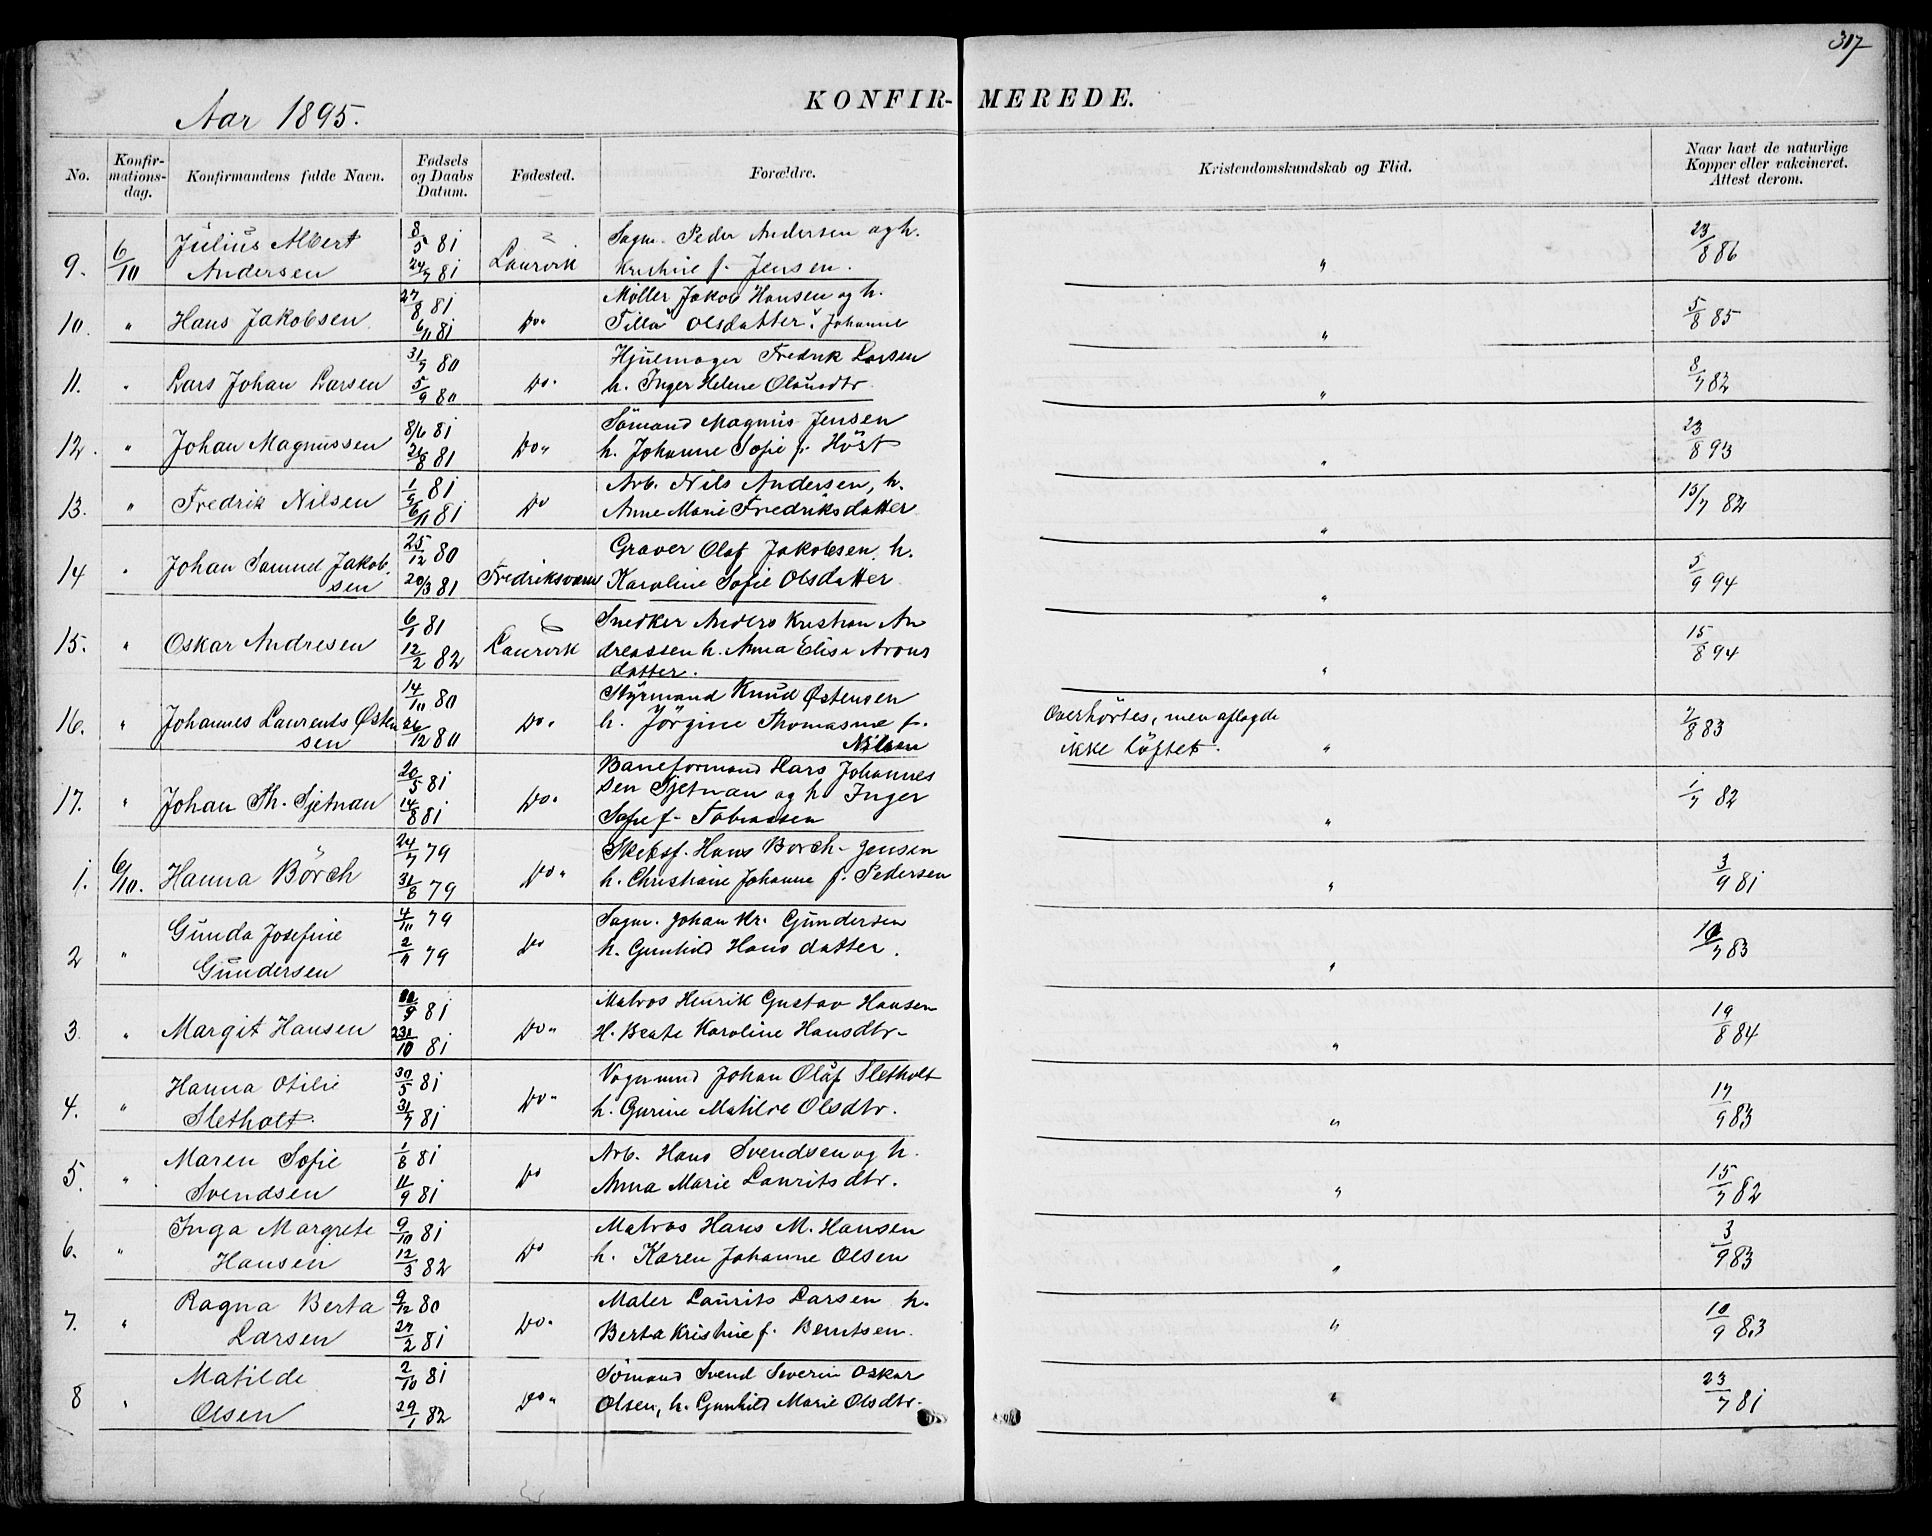 317
Aar 1895.
KONFIR-MEREDE.
No. Konfir-mations-dag. Konfirmandens fulde Navn. Fødsels og Daabs Datum. Fødested. Forældre. Kristendomskundskab og Flid. Naar havt de naturlige Kopper eller vakcineret. Attest derom.
Julius Albert 8/5 81 Sagm. Peder Andersen og h. 23/8 86
9. 6/10 Andersen 24/7 81 Laurvik Kristine f. Jensen. "
27/8 81 Møller Jakob Hansen og h.
10. " Hans Jakobsen 6/11 81 Do. Tilla Olsdatter. Johanne " 5/8 85
31/7 80 Hjulmager Fredrik Larsen
11. " Lars Johan Larsen 5/9 80 Do. h. Inger Helene Olausdtr. " 8/7 82
8/6 81 Sömand Magnus Jensen
12. " Johan Magnussen 21/8 81 Do. h. Johanne Sofie f. Höst " 23/8 93
1/9 81 Arb. Nils Andersen, h.
13. " Fredrik Nilsen 6/11 81 Do Anne Marie Fredriksdatter " 15/7 82
25/12 80 Graver Olaf Jakobsen. h.
14 " Johan Samuel Jakob-
sen 20/3 81 Fredriksværn Karoline Sofie Olsdatter. " 5/9 94
6/1 81 Snedker Anders Kristian An
15. " Oskar Andresen 12/2 82 Laurvik dreassen h. Anna Elise Arons " 15/8 94
datter.
14/10 80 Styrmand Knud Østensen
16. " Johannes Laurents Østen
sen 26/12 80 Do. h. Jörgine Thomasine f.
Nilsen
Overhörtes, men aflagde
ikke löftet. " 7/8 83
20/5 81 Baneformand Hars Johannes
17. " Johan Th. Sjetnan 14/8 81 Do. sen Sjetnan og h. Inger
Sofie f. Tobiassen " 1/7 82
24/7 79 Skibsf. Hans Borch-Jensen
1. 6/10. Hanna Börch 31/8 79 Do. h. Christiane Johanne f. Pedersen " 3/9 81
Gunda Josefine 4/10 79 Sagm. Johan Kr. Gundersen
2 " Gundersen 2/11 79 Do h. Gunhild Hansdatter. " 10/7 83
81 Matros Henrik Gustav Hansen
3. " Margit Hansen 81 Do. H. Beate Karoline Hansdtr. " 19/8 84
Hanna Otilie 30/5 81 Vognmand Johan Olaf Sletholt
4. " Sletholt. 31/7 81 Do. h. Gurine Matilde Olsdtr. " 17/9 83
Maren Sofie 1/8 81 Arb. Hans Svendsen og h.
5. " Svendsen 11/9 81 Do Anna Marie Lauritsdtr. " 15/7 82
Inga Margrete 9/10 81 Matros Hans M. Hansen
6. " Hansen 12/3 82 Do h. Karen Johanne Olsen " 3/9 83
Ragna Berta 9/12 80 Maler Laurits Larsen h.
7. " Larsen 27/2 81 Do. Berta Kristine f. Berntsen. " 10/9 83
Matilde 2/10 81 Sömand Svend Severin Oskar
8 " Olsen 29/1 82 Do. Olsen, h. Gunhild Marie Olsdtr. " 23/7 81